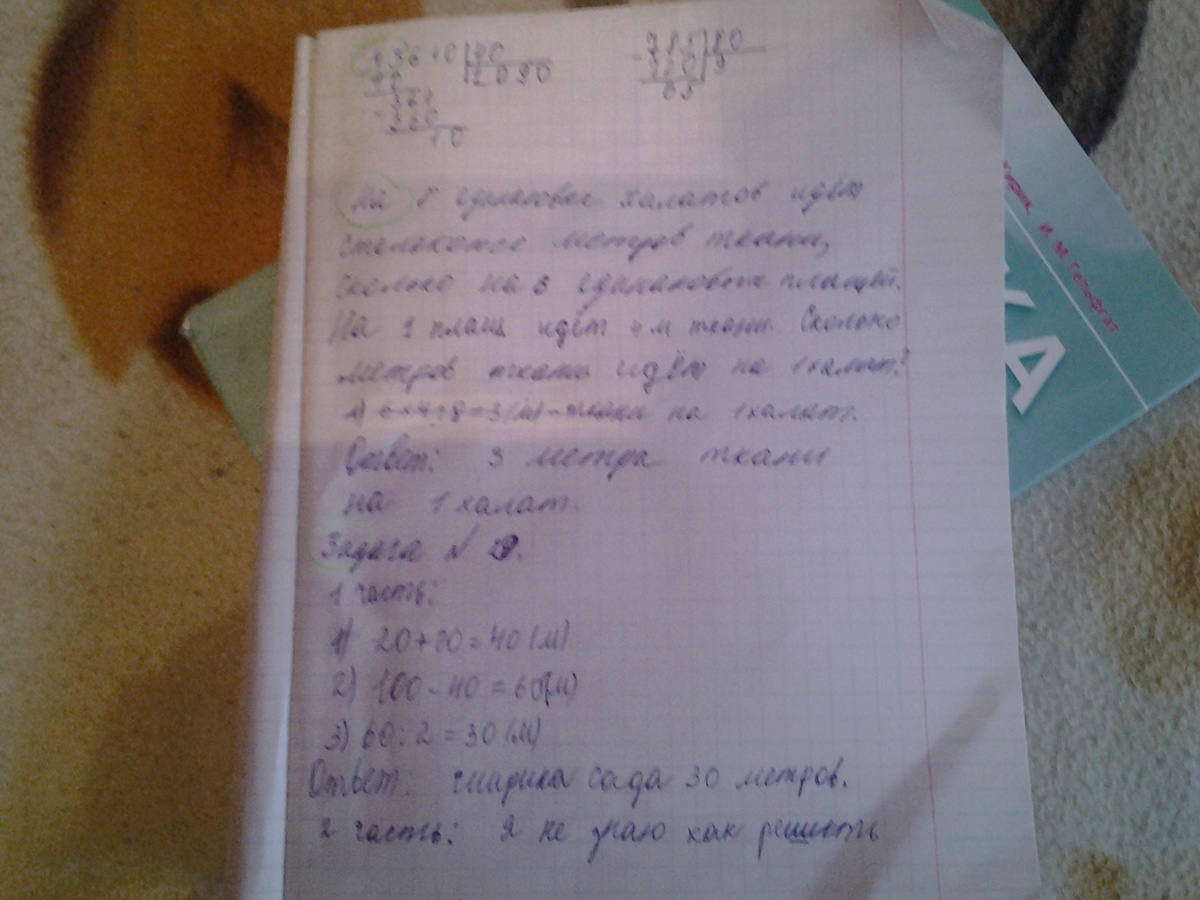 2090
785 80
9
65
360
На 8 одинаковых халатов идёт
столькоже метров ткани,
сколько на 6 одинаковых плащей.
На 1 плащ идёт 4 м ткани. Сколько
метров ткани идёт на 1 халат?
1) 6×4:8=3(м)-ткани на 1 халат.
Ответ: 3 метра ткани
на 1 халат.
Задача N
1 часть:
1) 20+20=40(м)
2) 100-40=60(м)
3) 60:2=30(м)
Ответ: ширина сада 30 метров.
2 часть: Я не знаю как решить
И. М. Гельфгат
КА